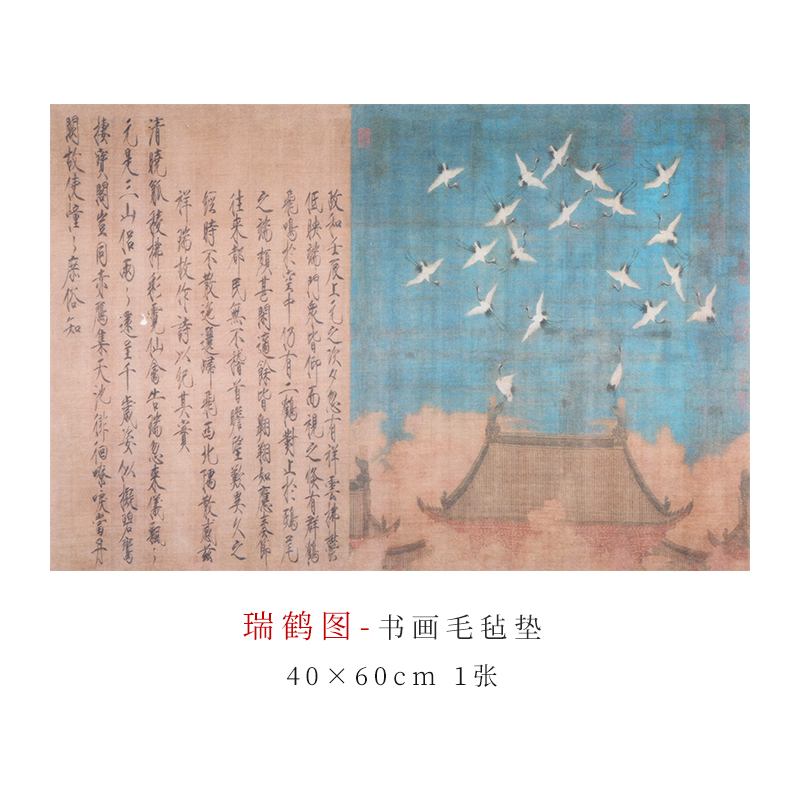 政和壬辰上元之次夕忽有祥雲拂鬱
低映端門眾皆仰而視之倏有群鶴
飛鳴於空中仍有二鶴對止於鴟尾
之端頗甚閑適餘皆翱翔如應奏節
往來都民無不稽首瞻望歎異久之
經時不散迤邐歸飛西北隅散感茲
祥瑞故作詩以紀其實
清曉觚稜拂彩霓仙禽告瑞忽來儀飄々
元是三山侶兩々還呈千歲姿似擬碧鸞
棲寶閣豈同赤鴈集天池徘徊嘹唳當丹
闕故使憧々庶俗知
瑞鹤图-书画毛毡垫
40×60cm 1张